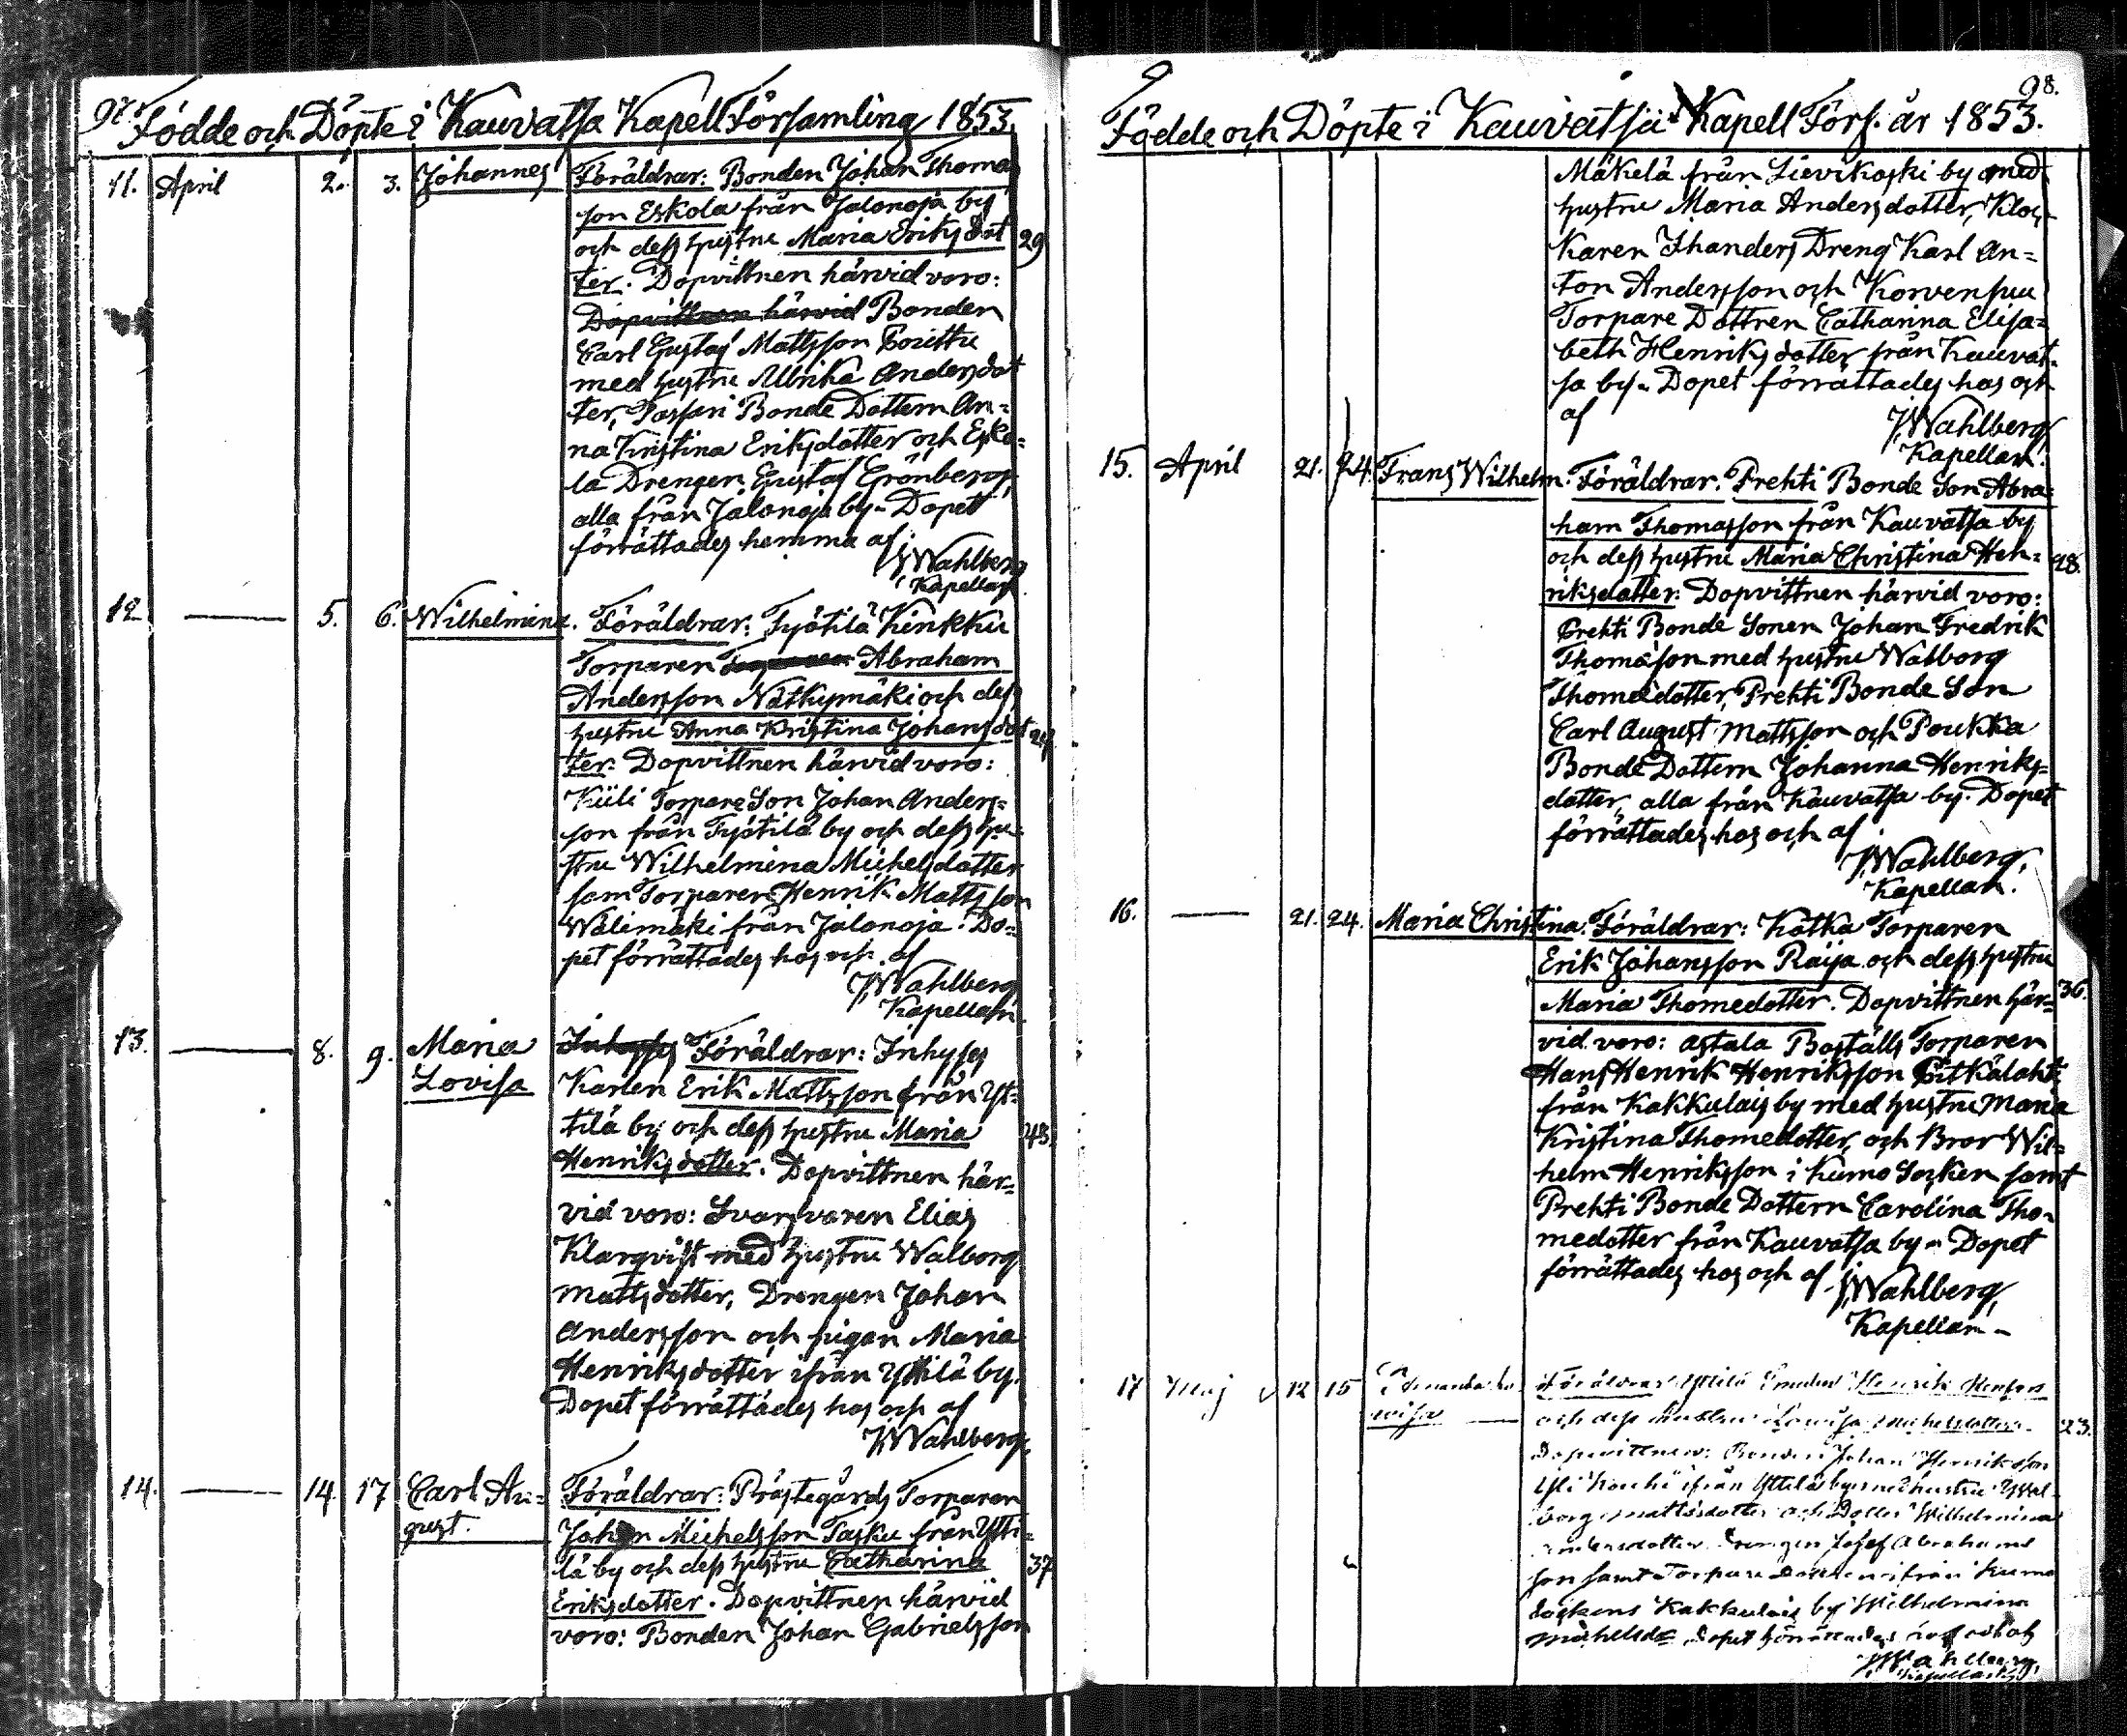 97.
Födde och Döpte i Kauvatsa Kapell Församling 1853.
11. April 2. 3. Johannes Föräldrar: Bonden Johan Thomas
son Eskola från Jalonoja by
och dess hustru Maria Eriksdot 29
ter. Dopvittnen härvid voro:
Dopvittnen härvid Bonden
Carl Gustaf Mattsson
med hustru Ulrika Andersdot
ter, Passari Bonde Dottern An=
na Kristina Eriksdotter och Esko=
la Drengen Gustaf Grönberg,
alla från Jalonoja by. Dopet
förrättades hemma af
JWahlberg
Kapellan
12 — 5. 6. Wilhelmina. Föräldrar: Työtilä Kinkku
Torparen Abraham
Andersson Nätkymäki och dess
hustru Anna Kristina Johansdot
ter. Dopvittnen härvid voro:
Küli Torpare Son Johan Anders=
son från Työtilä by och dess hu=
stru Wilhelmina Michelsdotter
samt Torparen Henrik Mattsson
Wälimäki från Jalonoja. Do=
pet förrättades hos och af
JWahlberg
Kapellan.
13. — 8. 9. Maria Föräldrar: Inhyses
Lovisa Karlen Erik Mattsson från Yt=
tilä by och dess hustru Maria 43.
Henriksdotter. Dopvittnen här=
vid voro: Svarfvaren Elias
Klarqvist med hustru Walborg
Mattsdotter, Drengen Johan
Andersson och pigan Maria
Henriksdotter ifrån Yttilä by.
Dopet förrättades hos och af
JWahlberg,
14. — 14. 17 Carl Au= Föräldrar: Prästegårds Torparen
gust. Johan Michelsson Tasku från Ytti=
lä by och dess hustru Catharina 37
Eriksdotter. Dopvittnen härvid
voro: Bonden Johan Gabrielsson
98.
Födde och Döpte i Kauvatsa Kapell Förs. år 1853.
Mäkelä från Lievikoski by med
hustru Maria Andersdotter, Kloc=
karen Thanders Dreng Karl An=
ton Andersson och Korvenpuu
Torpare Dottren Catharina Elisa=
beth Henriksdotter från Kauvat=
sa by. Dopet förrättades hos och
af JWahlberg
Kapellan.
15. April 21. 24. Frans Wilhelm. Föräldrar: Prehti Bonde Son Abra=
ham Thomasson från Kauvatsa by
och dess hustru Maria Christina Hen= 28.
riksdotter. Dopvittnen härvid voro:
Prehti Bonde Sonen Johan Fredrik
Thomasson med hustru Walborg
Thomedotter, Prehti Bonde Son
Carl August Mattsson och Poukka
Bonde Dottern Johanna Henriks=
dotter, alla från Kauvatsa by. Dopet
förrättades hos och af
JWahlberg,
Kapellan.
16. — 21. 24. Maria Christina. Föräldrar: Kotka Torparen
Erik Johansson Raija och dess hustru
Maria Thomedotter. Dopvittnen här= 36.
vid voro: Astala Boställs Torparen
Hans Henrik Henriksson Pitkälahti
från Kakkulais by med hustru Maria
Kristina Thomedotter, och Bror Wil=
helm Henriksson i Kumo Socken samt
Prehti Bonde Dottern Carolina Tho=
medotter från Kauvatsa by. Dopet
förrättades hos och af JWahlberg,
Kapellan
17 Maj 12 15 Föräldrar: Yttilä Henrik
visa och dess hustru Lovisa Michelsdotter. 23.
Dopvittnen: Bonden Johan Henriksson
Yli ifrån Yttilä by med hustru Wal=
borg Mattsdotter och Dotter Wilhelmina
Andersdotter Drengen Josef Abrahams
son samt Torpare Dottren ifrån Kumo
Sockens Kakkulais by Wilhelmina
Michelsdr Dopet förrättades
JWahlberg,
Kapellan